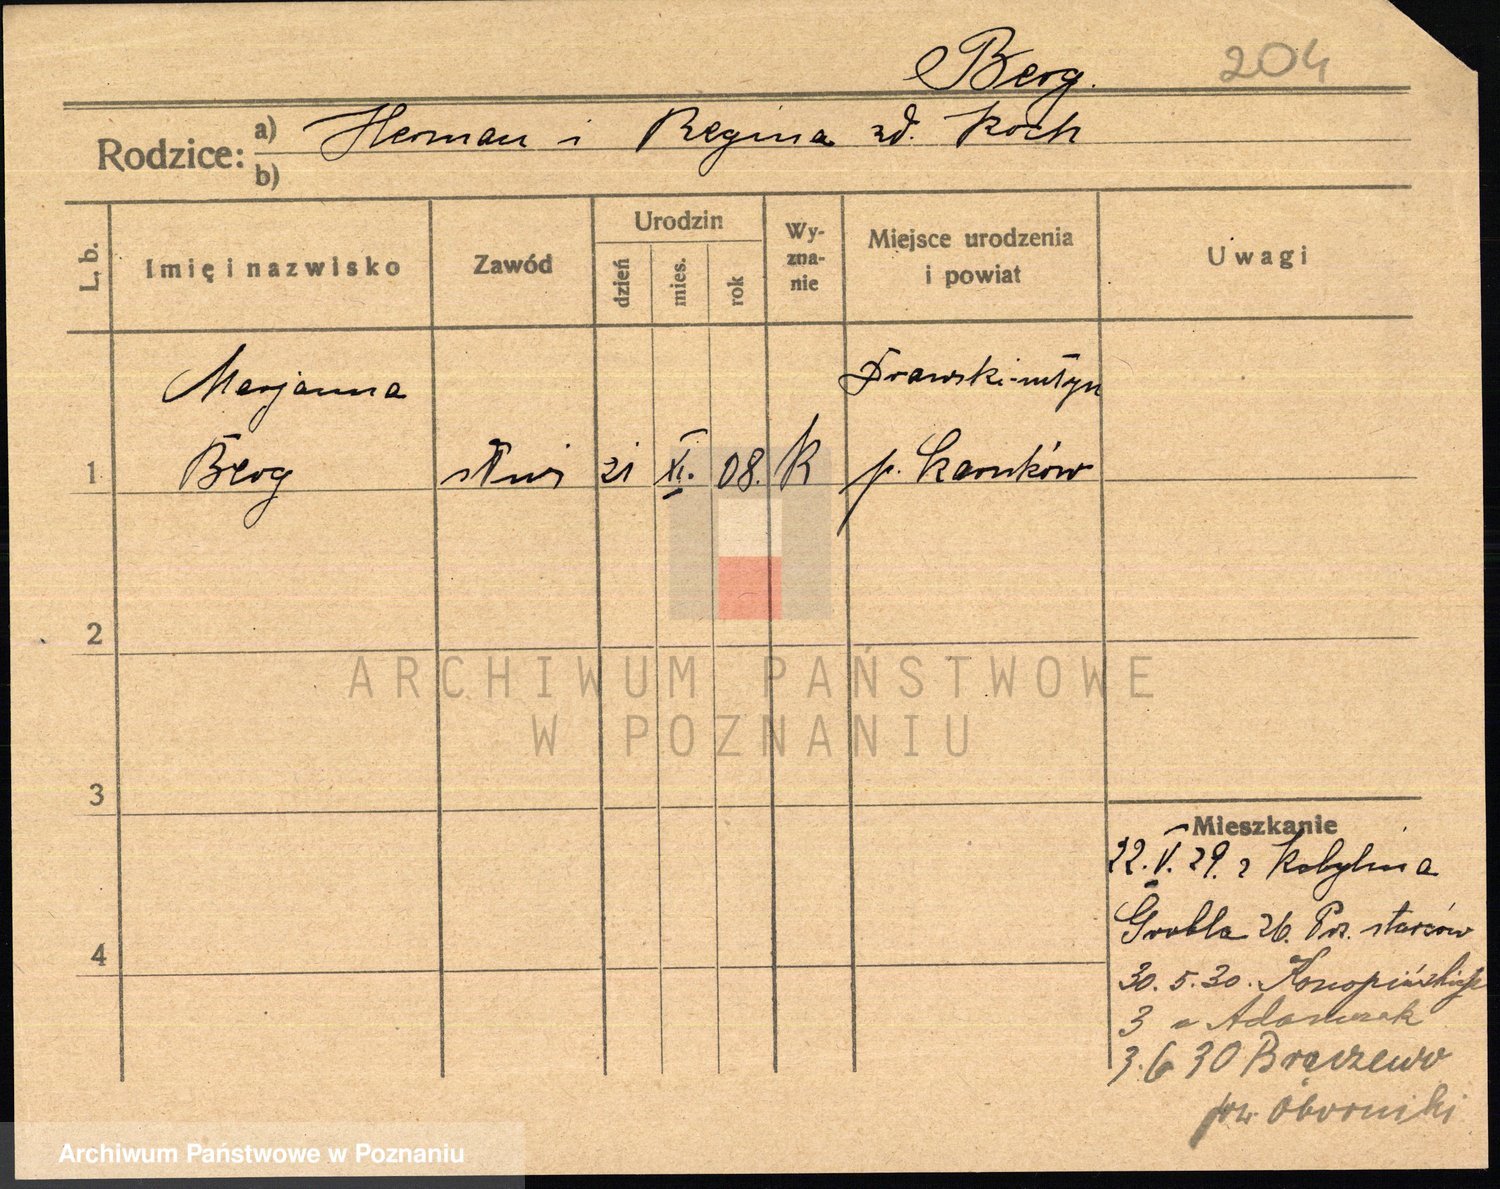 Berg. 204
Rodzice: a) Herman i Regina zd. Koch
b)
L. b. Imię i nazwisko Zawód Urodzin dzień mies. rok Wy-zna-nie Miejsce urodzenia i powiat Uwagi
Marjanna Drawski-młyn
1 Berg 21 XI. 08. K p. Czarnków
2
3
4
Mieszkanie
22.V.29. z Kobylina
Grobla 26. Prz. starców
30.5.30. Konopińskiej
3 u Adamczak
3.6 30 Brączewo
pow. Oborniki
ARCHIWUM PAŃSTWOWE
W POZNANIU
Archiwum Państwowe w Poznaniu